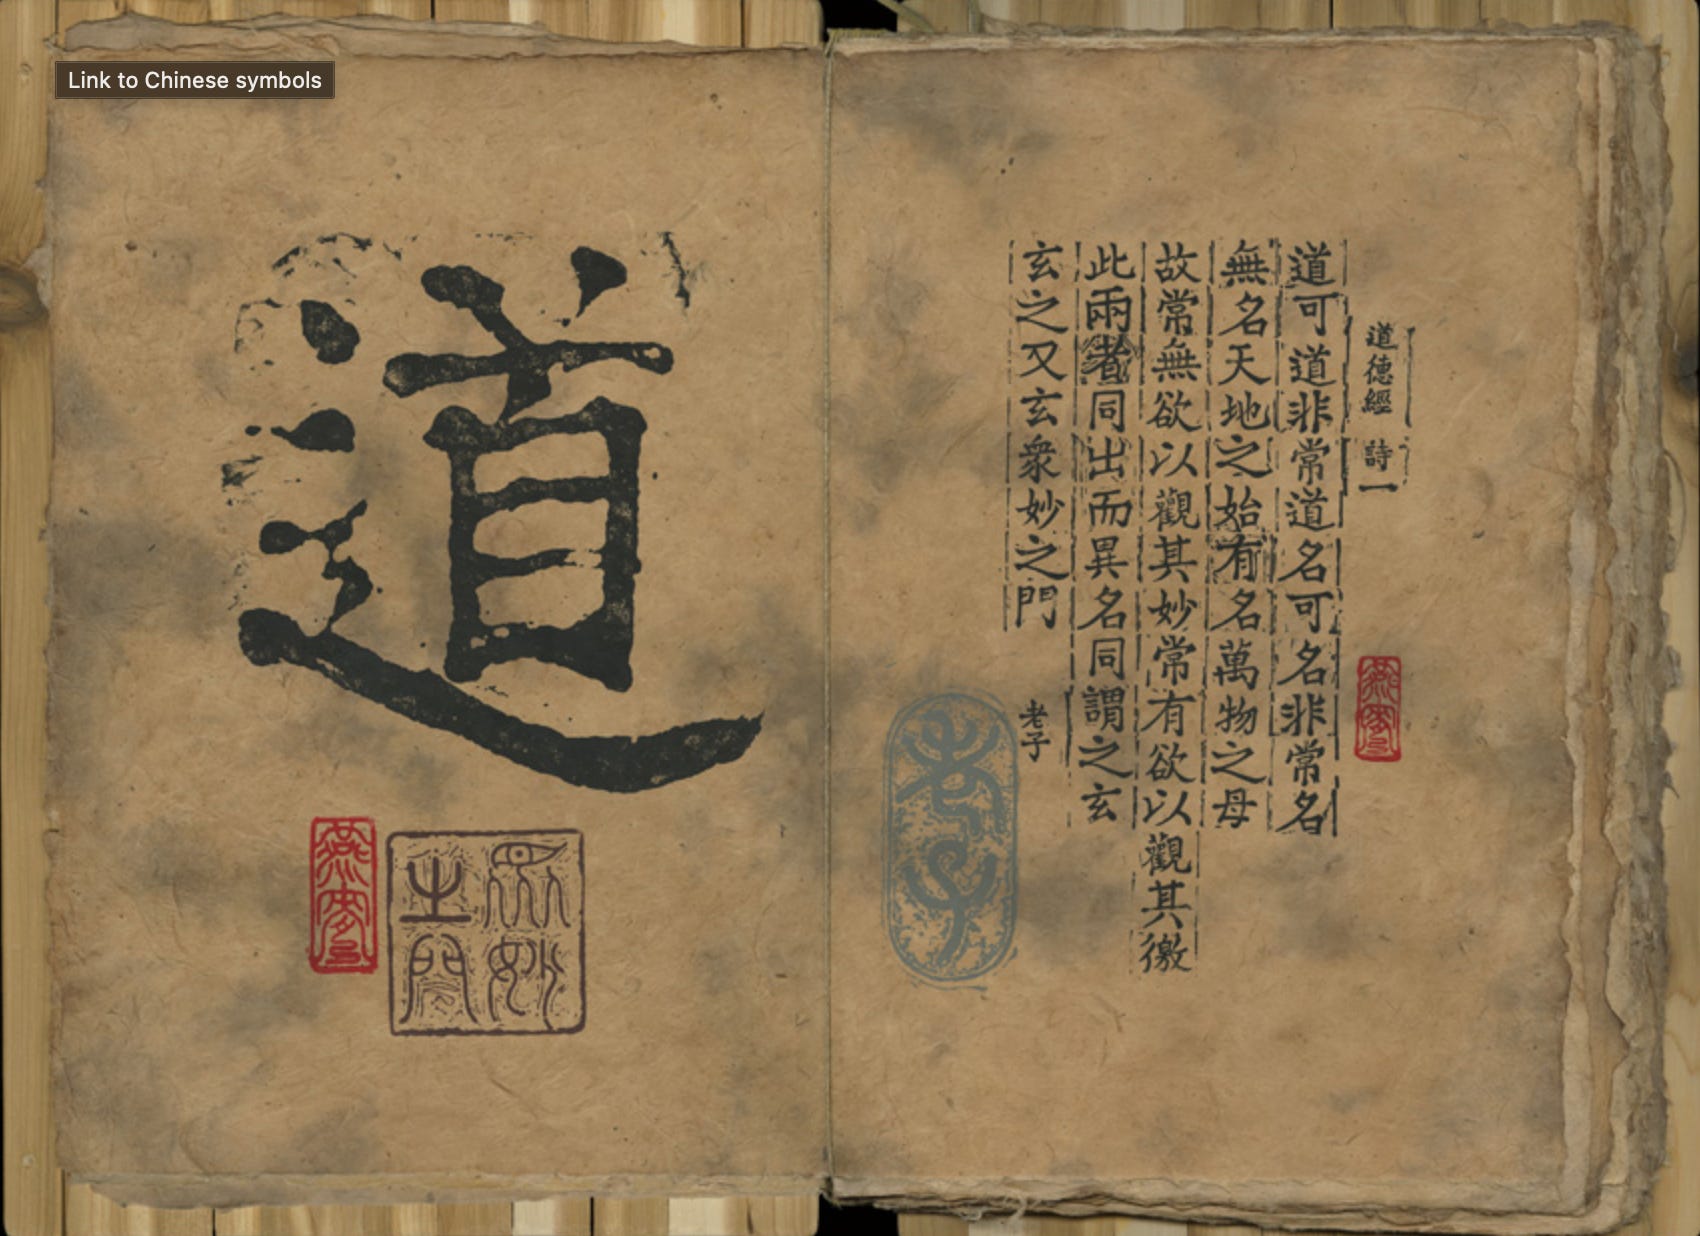 Link to Chinese symbols
道
眾妙
之門
道德經 詩一
道可道非常道名可名非常名
無名天地之始有名萬物之母
故常無欲以觀其妙常有欲以觀其徼
此兩者同出而異名同謂之玄
玄之又玄衆妙之門
老子
老子